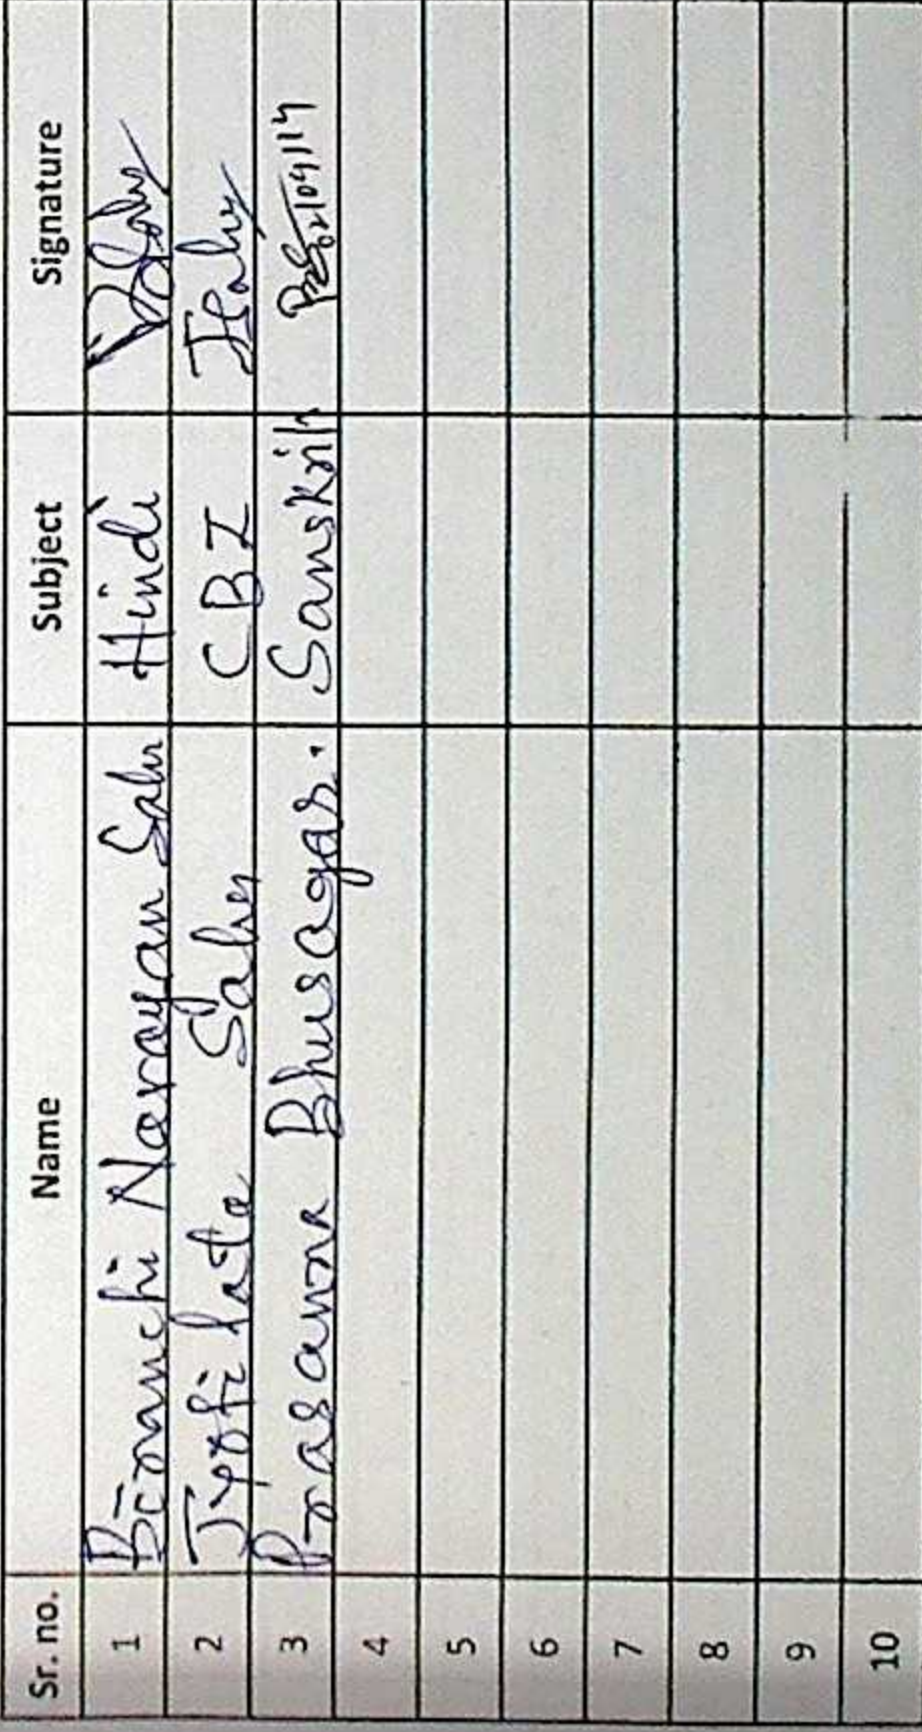 Sr. no. Name Subject Signature
1 Biranchi Narayan Sahu Hindi
2 Jyoti lata Sahu CBZ
3 Prasanna Bhusagar. Sanskrit
4
5
6
7
8
9
10